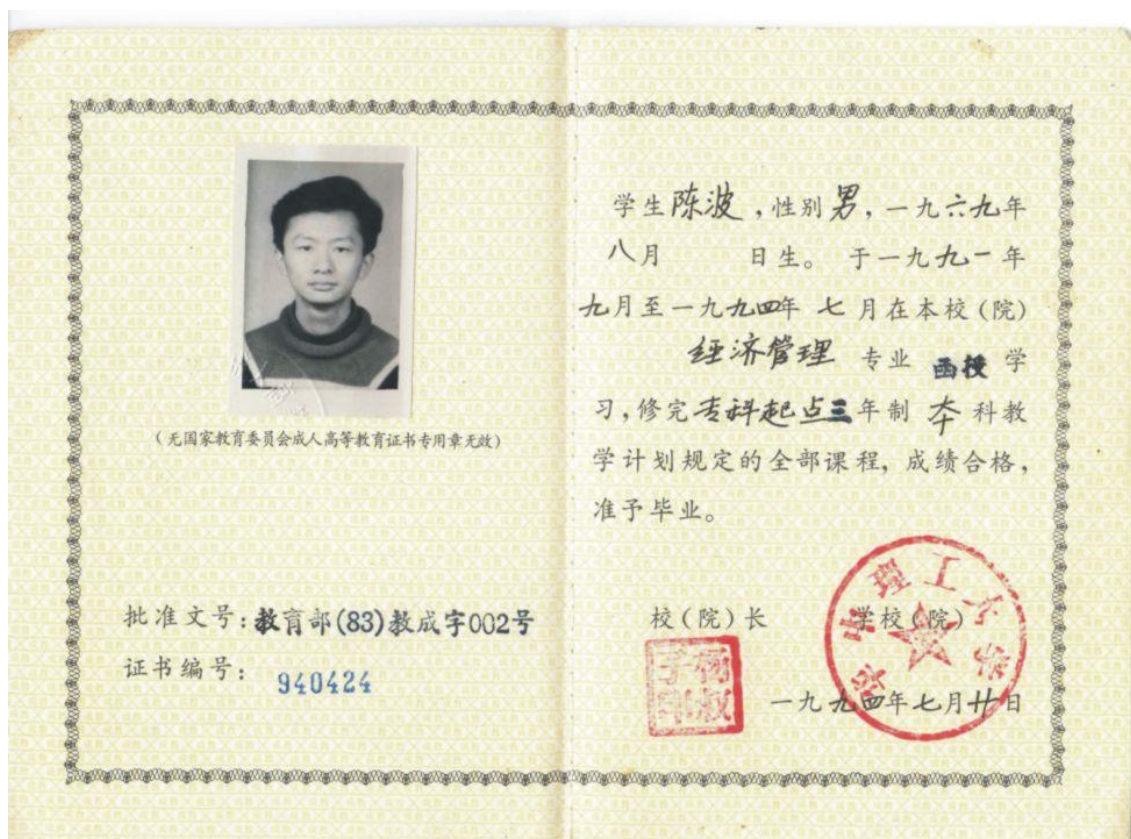 (无国家教育委员会成人高等教育证书专用章无效)
批准文号：教育部(83)教成字002号
证书编号：940424
学生陈波，性别男，一九六九年
八月 日生。于一九九一年
九月至一九九四年 七 月在本校(院)
经济管理 专业 函授 学
习，修完专科起点三年制 本 科教
学计划规定的全部课程，成绩合格，
准予毕业。
校(院)长 学校(院)
杨叔子印
华中理工大学
一九九四年七月廿日